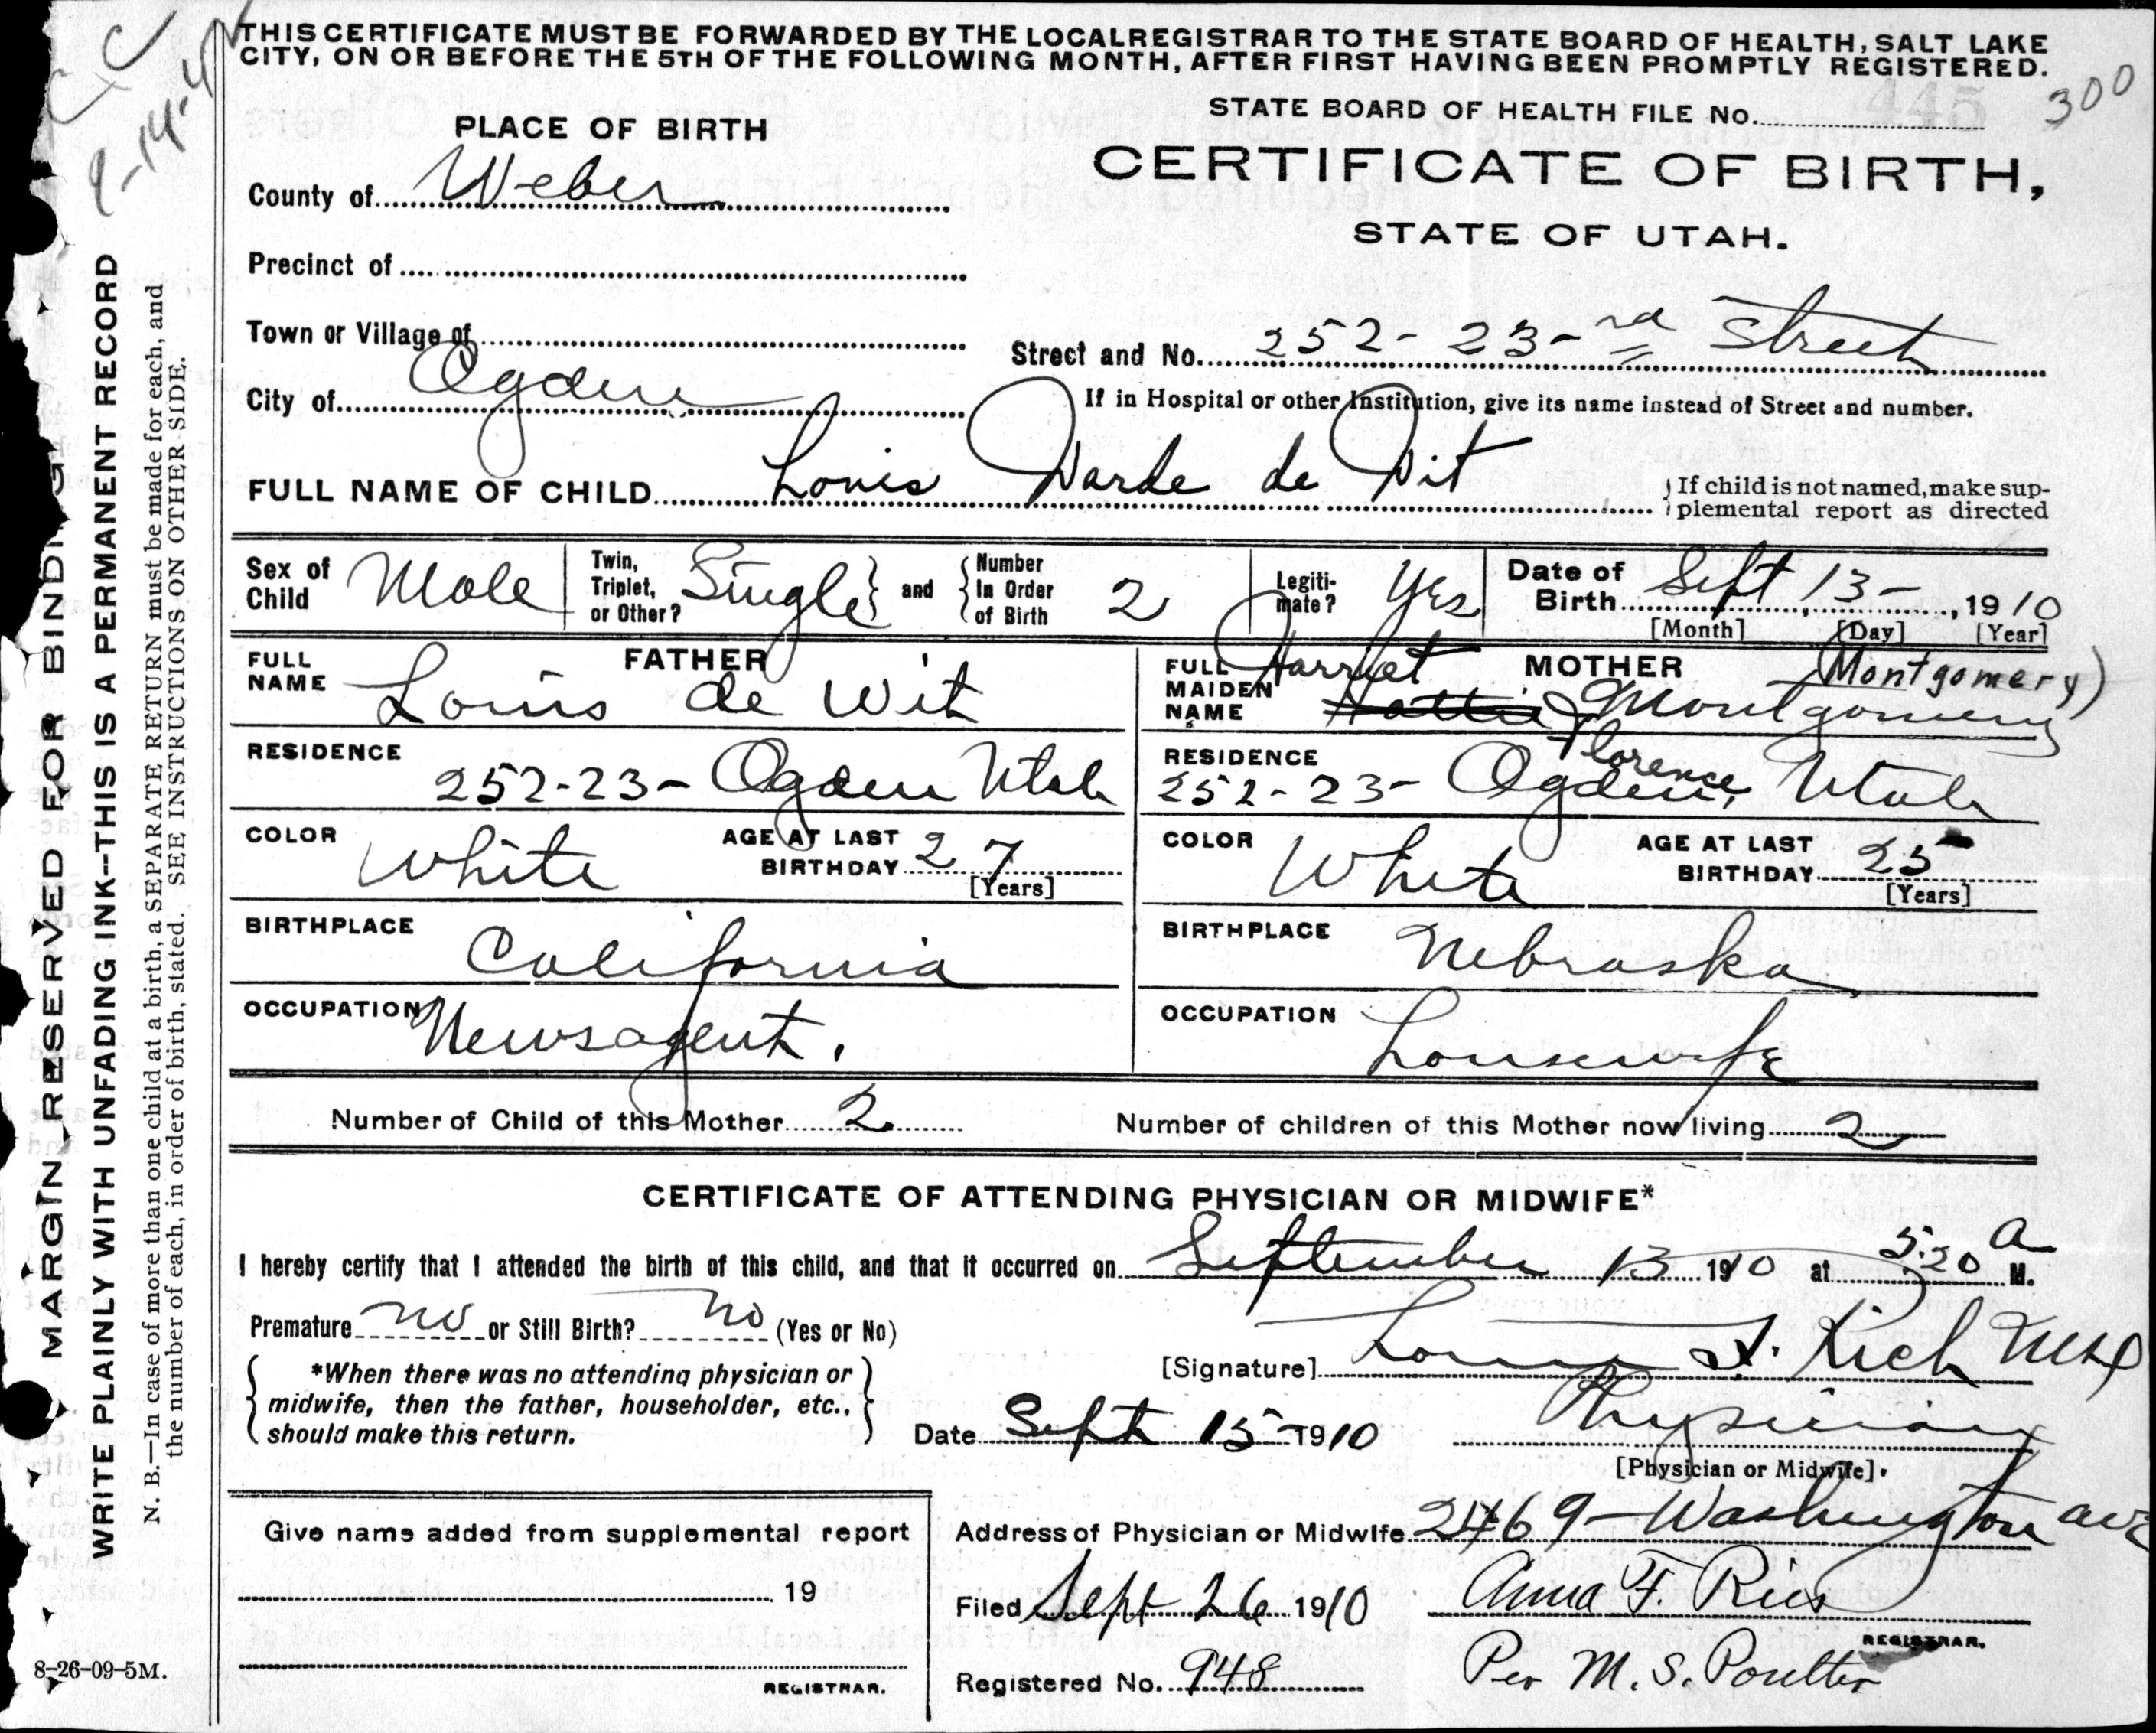 THIS CERTIFICATE MUST BE FORWARDED BY THE LOCAL REGISTRAR TO THE STATE BOARD OF HEALTH, SALT LAKE
CITY, ON OR BEFORE THE 5TH OF THE FOLLOWING MONTH, AFTER FIRST HAVING BEEN PROMPTLY REGISTERED.
STATE BOARD OF HEALTH FILE No. 445 300
PLACE OF BIRTH
CERTIFICATE OF BIRTH,
STATE OF UTAH.
County of Weber
Precinct of
Town or Village of
Street and No. 252- 23-rd Street
City of Ogden
If in Hospital or other Institution, give its name instead of Street and number.
FULL NAME OF CHILD Louis Warde de Wit
If child is not named, make sup-
plemental report as directed
Sex of Child Male
Twin, Triplet, or Other? Single and Number In Order of Birth 2
Legiti-mate? Yes
Date of Birth Sept 13- , 1910
[Month] [Day] [Year]
FATHER
FULL NAME Louis de Wit
RESIDENCE 252-23- Ogden Utah
COLOR White AGE AT LAST BIRTHDAY 27 [Years]
BIRTHPLACE California
OCCUPATION Newsagent.
MOTHER
FULL MAIDEN NAME Harriet Hattie Florence Montgomery (Montgomery)
RESIDENCE 252-23- Ogden, Utah
COLOR White AGE AT LAST BIRTHDAY 25 [Years]
BIRTHPLACE Nebraska
OCCUPATION housewife
Number of Child of this Mother 2. Number of children of this Mother now living 2
CERTIFICATE OF ATTENDING PHYSICIAN OR MIDWIFE*
I hereby certify that I attended the birth of this child, and that it occurred on September 13 1910 at 5:20 A M.
Premature no or Still Birth? no (Yes or No)
*When there was no attending physician or
midwife, then the father, householder, etc.,
should make this return.
[Signature] Rich
Date Sept 15- 1910 Physician
[Physician or Midwife].
Give name added from supplemental report
19
REGISTRAR.
Address of Physician or Midwife 2469- Washington ave
Filed Sept 26 1910 Anna F. Ries
REGISTRAR.
Registered No. 948 Per M. S. Poulter
8-26-09-5M.
MARGIN RESERVED FOR BINDING
WRITE PLAINLY WITH UNFADING INK--THIS IS A PERMANENT RECORD
N. B.—In case of more than one child at a birth, a SEPARATE RETURN must be made for each, and
the number of each, in order of birth, stated. SEE INSTRUCTIONS ON OTHER SIDE.